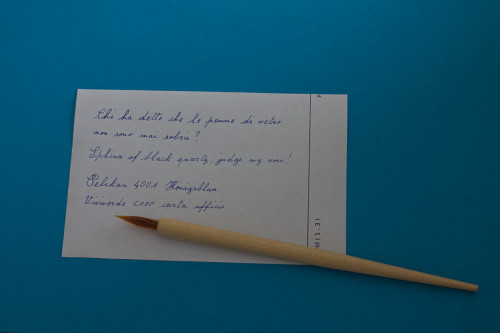 Chi ha detto che le penne di vetro
non sono mai sobrie?
Sphinx of black quartz, judge my vow!
Pelikan 4001 Königsblau
Viviverde COOP carta ufficio
d(1,3)